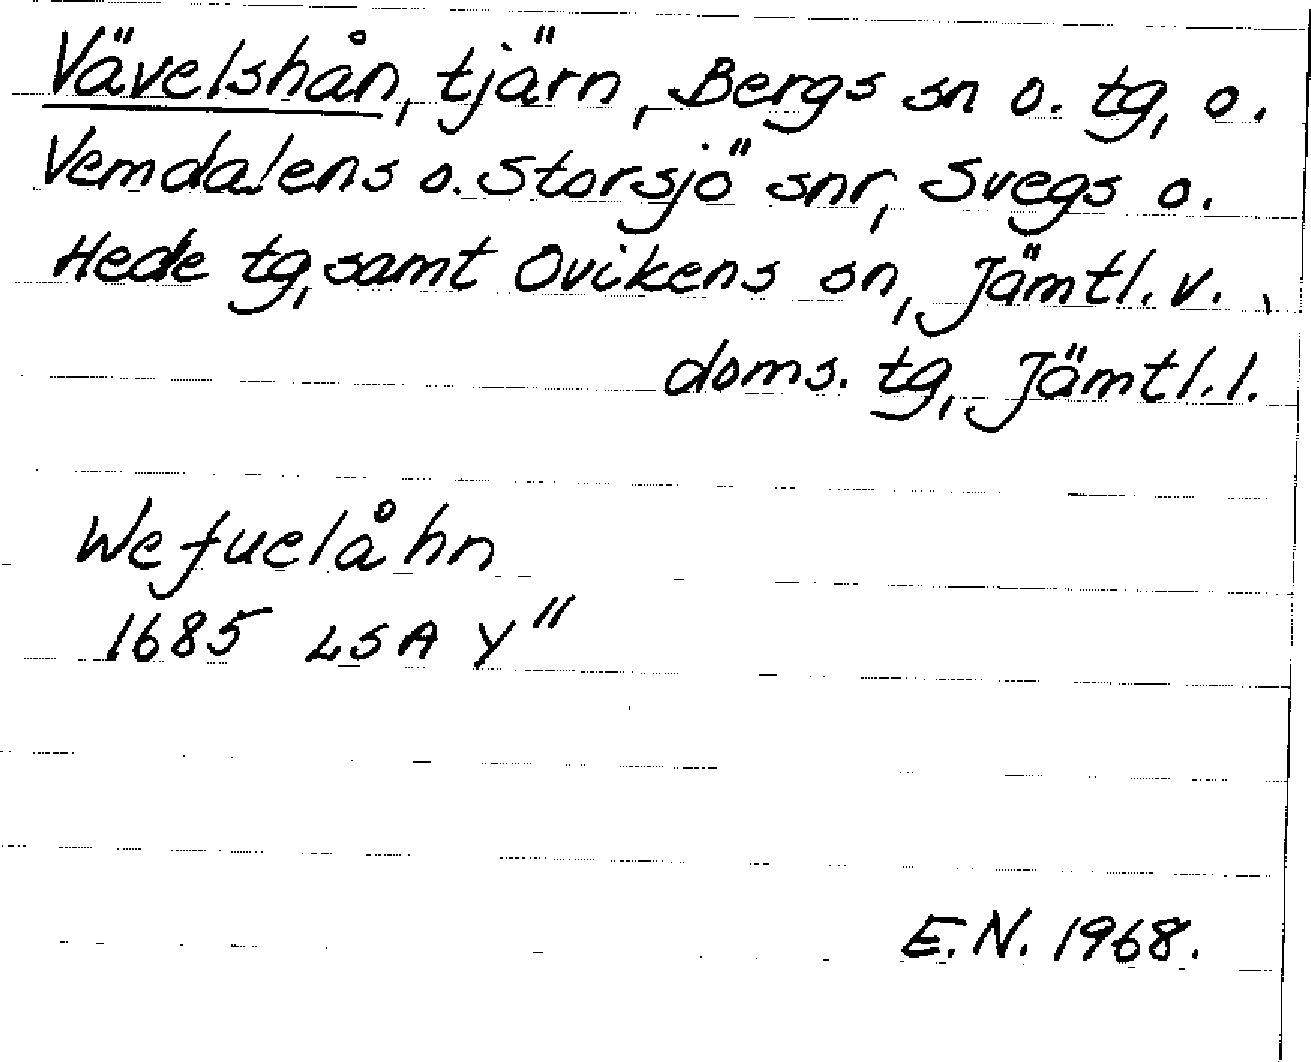 Vävelshån, tjärn, Bergs sn o. tg, o.
Vemdalens o. Storsjö snr, Svegs o.
Hede tg, samt Ovikens sn, Jämtl. v.
doms. tg, Jämtl. l.
Wefuelåhn
1685 LSA Y"
E.N. 1968.